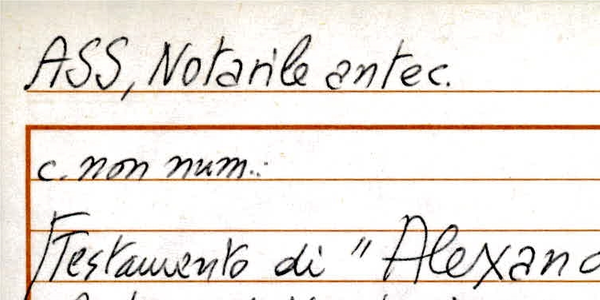 ASS, Notarile antec.
c. non num.:
Testamento di "Alexand